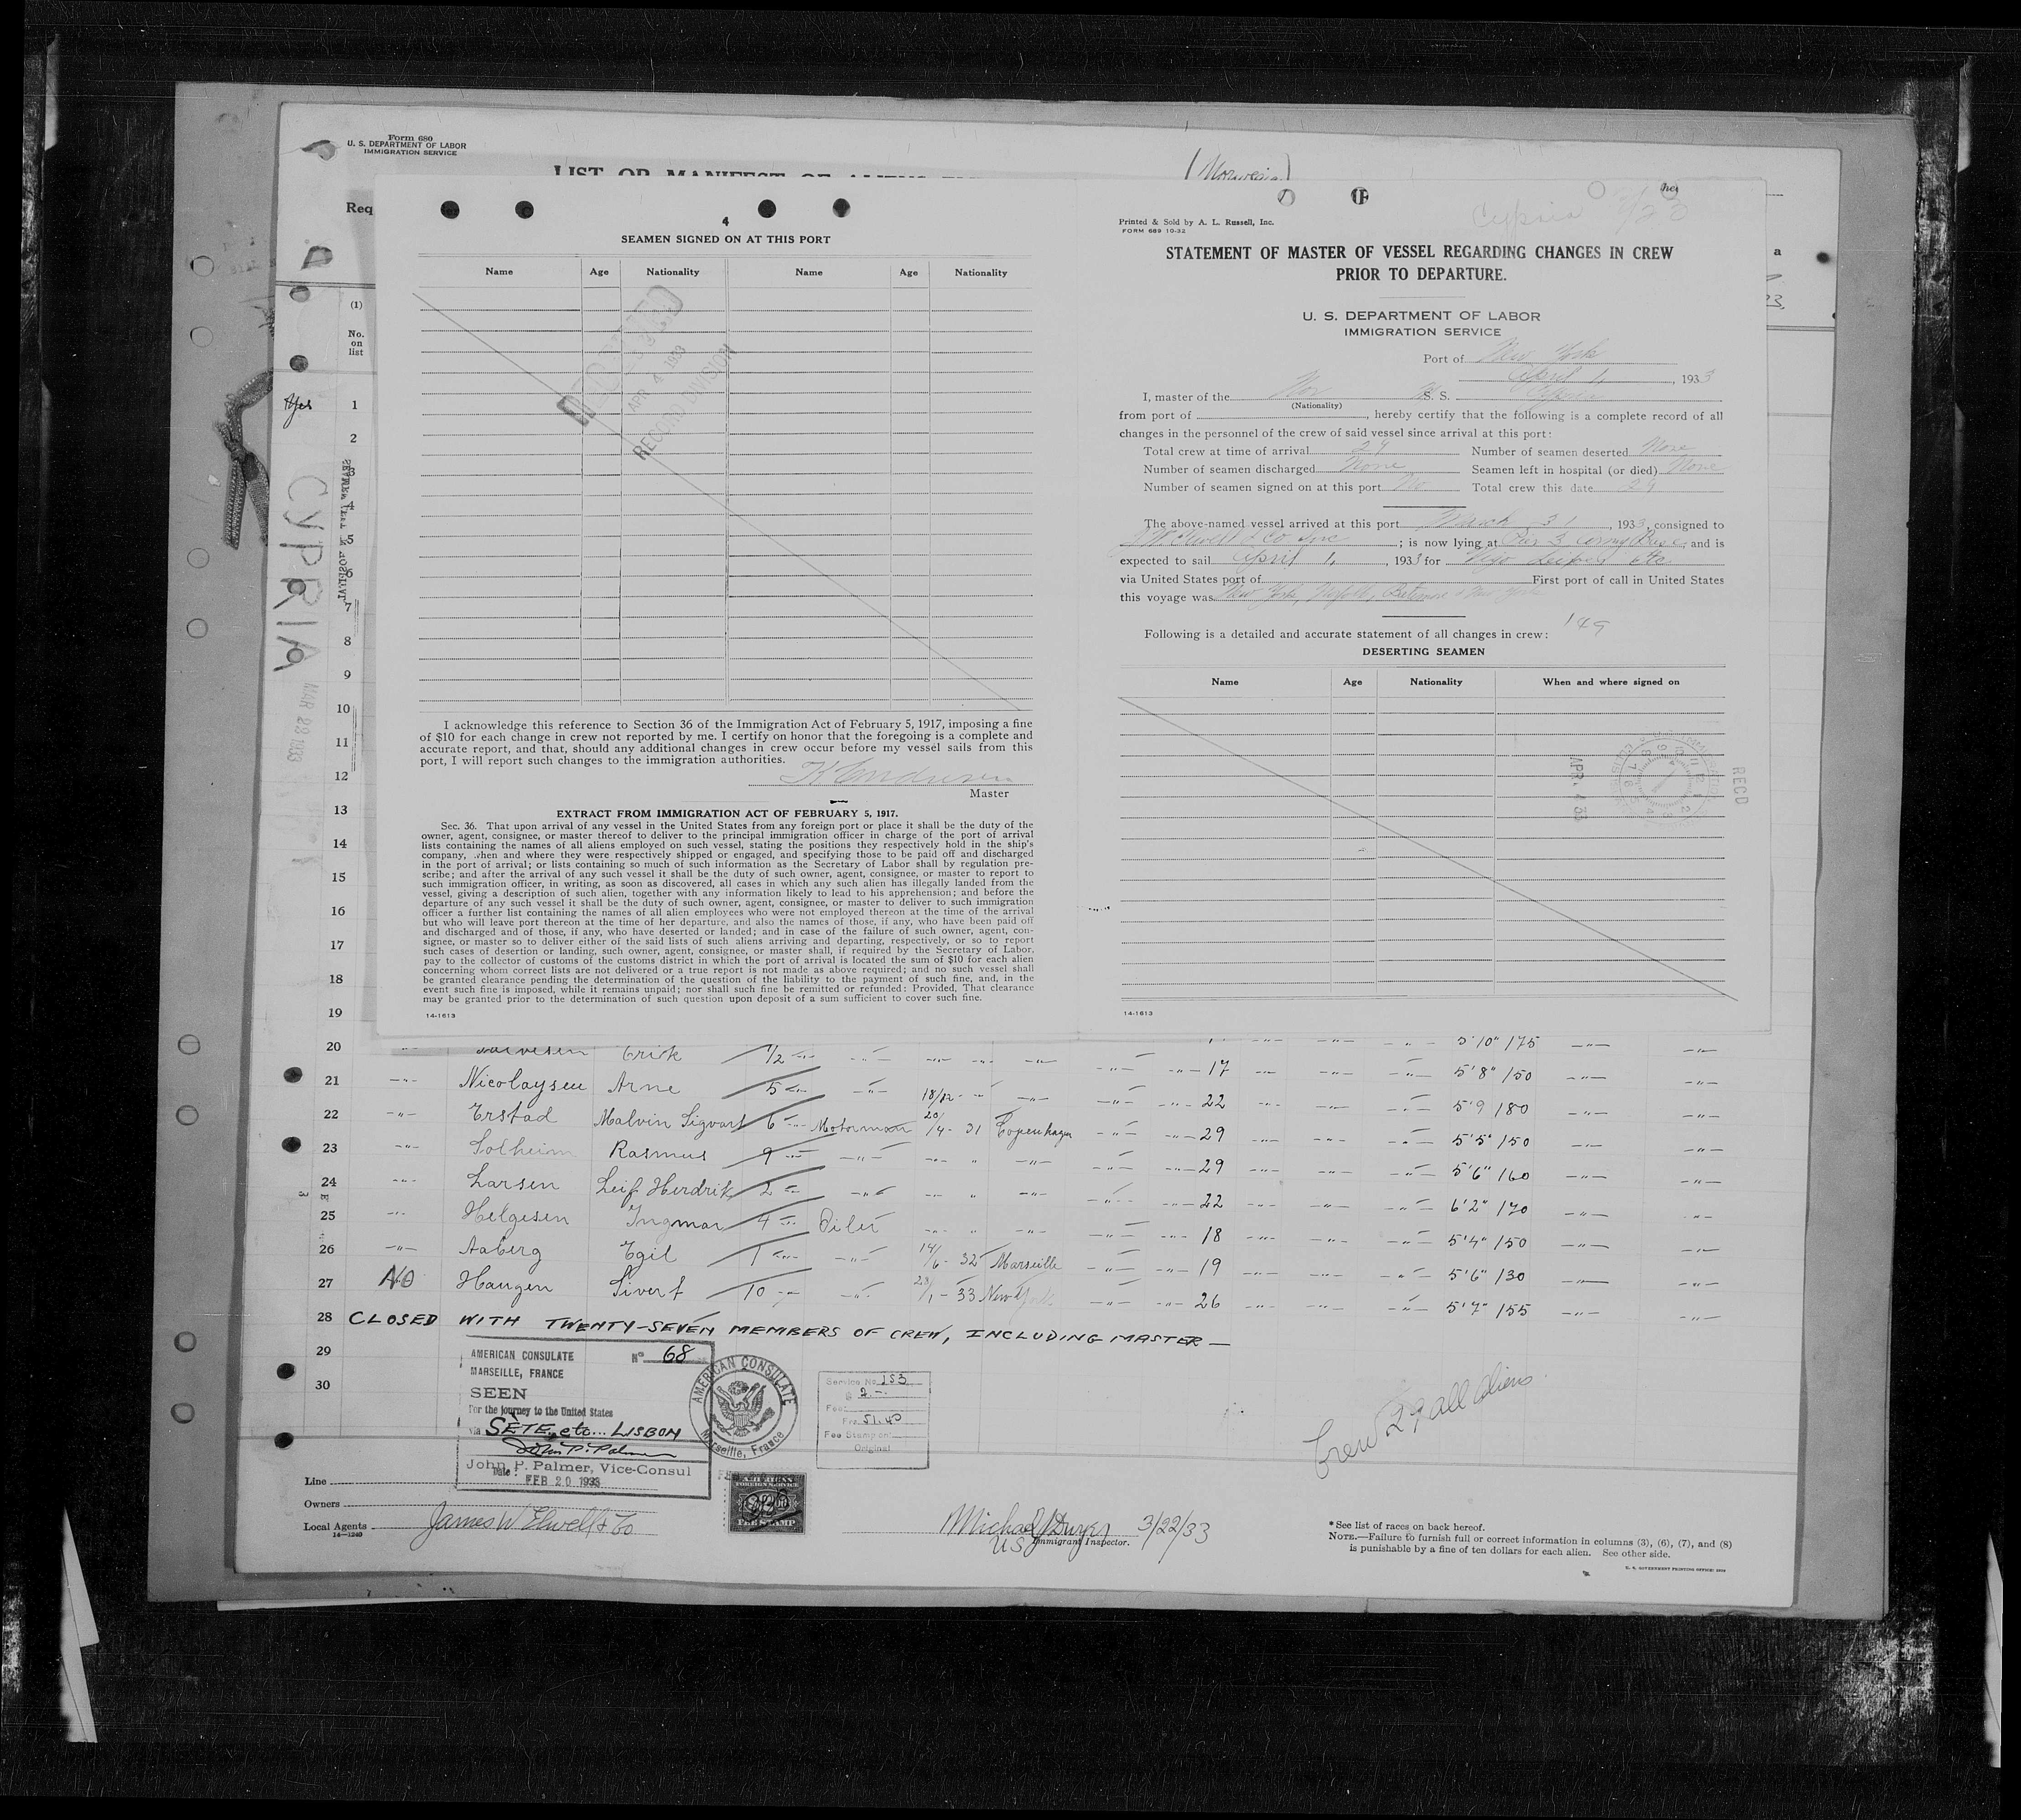 Form 680
U. S. DEPARTMENT OF LABOR
IMMIGRATION SERVICE
LIST OR MANIFEST OF ALIENS
(Norwegian)
Req
a
(1)
No.
on
list
Yes
CYPRIA
MAR 22 1933
1
2
3
4
5
6
7
8
9
10
11
12
13
14
15
16
17
18
19
4
SEAMEN SIGNED ON AT THIS PORT
Name Age Nationality Name Age Nationality
RECEIVED
APR 4 1933
RECORD DIVISION
I acknowledge this reference to Section 36 of the Immigration Act of February 5, 1917, imposing a fine
of $10 for each change in crew not reported by me. I certify on honor that the foregoing is a complete and
accurate report, and that, should any additional changes in crew occur before my vessel sails from this
port, I will report such changes to the immigration authorities.
Master
EXTRACT FROM IMMIGRATION ACT OF FEBRUARY 5, 1917.
Sec. 36. That upon arrival of any vessel in the United States from any foreign port or place it shall be the duty of the
owner, agent, consignee, or master thereof to deliver to the principal immigration officer in charge of the port of arrival
lists containing the names of all aliens employed on such vessel, stating the positions they respectively hold in the ship's
company, when and where they were respectively shipped or engaged, and specifying those to be paid off and discharged
in the port of arrival; or lists containing so much of such information as the Secretary of Labor shall by regulation pre-
scribe; and after the arrival of any such vessel it shall be the duty of such owner, agent, consignee, or master to report to
such immigration officer, in writing, as soon as discovered, all cases in which any such alien has illegally landed from the
vessel, giving a description of such alien, together with any information likely to lead to his apprehension; and before the
departure of any such vessel it shall be the duty of such owner, agent, consignee, or master to deliver to such immigration
officer a further list containing the names of all alien employees who were not employed thereon at the time of the arrival
but who will leave port thereon at the time of her departure, and also the names of those, if any, who have been paid off
and discharged and of those, if any, who have deserted or landed; and in case of the failure of such owner, agent, con-
signee, or master so to deliver either of the said lists of such aliens arriving and departing, respectively, or so to report
such cases of desertion or landing, such owner, agent, consignee, or master shall, if required by the Secretary of Labor,
pay to the collector of customs of the customs district in which the port of arrival is located the sum of $10 for each alien
concerning whom correct lists are not delivered or a true report is not made as above required; and no such vessel shall
be granted clearance pending the determination of the question of the liability to the payment of such fine, and, in the
event such fine is imposed, while it remains unpaid; nor shall such fine be remitted or refunded: Provided, That clearance
may be granted prior to the determination of such question upon deposit of a sum sufficient to cover such fine.
14-1613
Cypria 3/22
Printed & Sold by A. L. Russell, Inc.
FORM 689 10-32
STATEMENT OF MASTER OF VESSEL REGARDING CHANGES IN CREW
PRIOR TO DEPARTURE.
U. S. DEPARTMENT OF LABOR
IMMIGRATION SERVICE
Port of New York
April 1, 1933
I, master of the Nor S. S. Cypria
(Nationality)
from port of , hereby certify that the following is a complete record of all
changes in the personnel of the crew of said vessel since arrival at this port:
Total crew at time of arrival 27 Number of seamen deserted None
Number of seamen discharged None Seamen left in hospital (or died) None
Number of seamen signed on at this port No Total crew this date 27
The above-named vessel arrived at this port March 31, 1933, consigned to
J W Elwell & Co Inc ; is now lying at Pier 3 Army Base and is
expected to sail April 1, 1933 for Vigo Leixoes etc.
via United States port of First port of call in United States
this voyage was New York, Norfolk, Baltimore & New York
149
Following is a detailed and accurate statement of all changes in crew:
DESERTING SEAMEN
Name Age Nationality When and where signed on
RECD
APR 4 33
14-1613
20 -"- Erick 1/2 -"- -"- -"- -"- -"- -"- -"- -"- -"- -"- 5'10" 175 -"- -"-
21 -"- Nicolaysen Arne 5 -"- -"- 18/12 - " -"- -"- -"- 17 -"- -"- -"- 5'8" 150 -"- -"-
22 -"- Erstad Malvin Sigvart 6 -"- Motorman 20/4 - 31 Copenhagen -"- -"- 22 -"- -"- -"- 5'9 180 -"- -"-
23 -"- Solheim Rasmus 9 -"- -"- -"- " -"- -"- -"- 29 -"- -"- -"- 5'5" 150 -"- -"-
24 -"- Larsen Leif Herdrik 2 -"- -"- -"- " -"- -"- -"- 29 -"- -"- -"- 5'6" 160 -"- -"-
25 -"- Helgesen Ingmar 4 -"- Oiler -"- " -"- -"- -"- 22 -"- -"- -"- 6'2" 170 -"- -"-
26 -"- Aaberg Egil 1 -"- -"- 14/6 - 32 Marseille -"- -"- 18 -"- -"- -"- 5'4" 150 -"- -"-
27 NO Haugen Sivert 10 -"- -"- 23/1 - 33 New York -"- -"- 19 -"- -"- -"- 5'6" 130 -"- -"-
-"- -"- 26 -"- -"- -"- 5'7" 155 -"- -"-
28 CLOSED WITH TWENTY-SEVEN MEMBERS OF CREW, INCLUDING MASTER —
29
30
AMERICAN CONSULATE No 68
MARSEILLE, FRANCE
SEEN
For the journey to the United States
via SÈTE, etc... LISBON
John P. Palmer
John P. Palmer, Vice-Consul
Date: FEB 20 1933
AMERICAN CONSULATE
Marseille, France
Service No. 153
$ 2.-
Fee:
Frs. 51.40
Fee Stamp on:
Original
AMERICAN
FOREIGN SERVICE
FEE STAMP
Crew 27 all aliens
Line
Owners
Local Agents James W Elwell & Co
14-1240
Michael J Dwyer 3/22/33
US Immigrant Inspector.
* See list of races on back hereof.
NOTE.—Failure to furnish full or correct information in columns (3), (6), (7), and (8)
is punishable by a fine of ten dollars for each alien. See other side.
U. S. GOVERNMENT PRINTING OFFICE